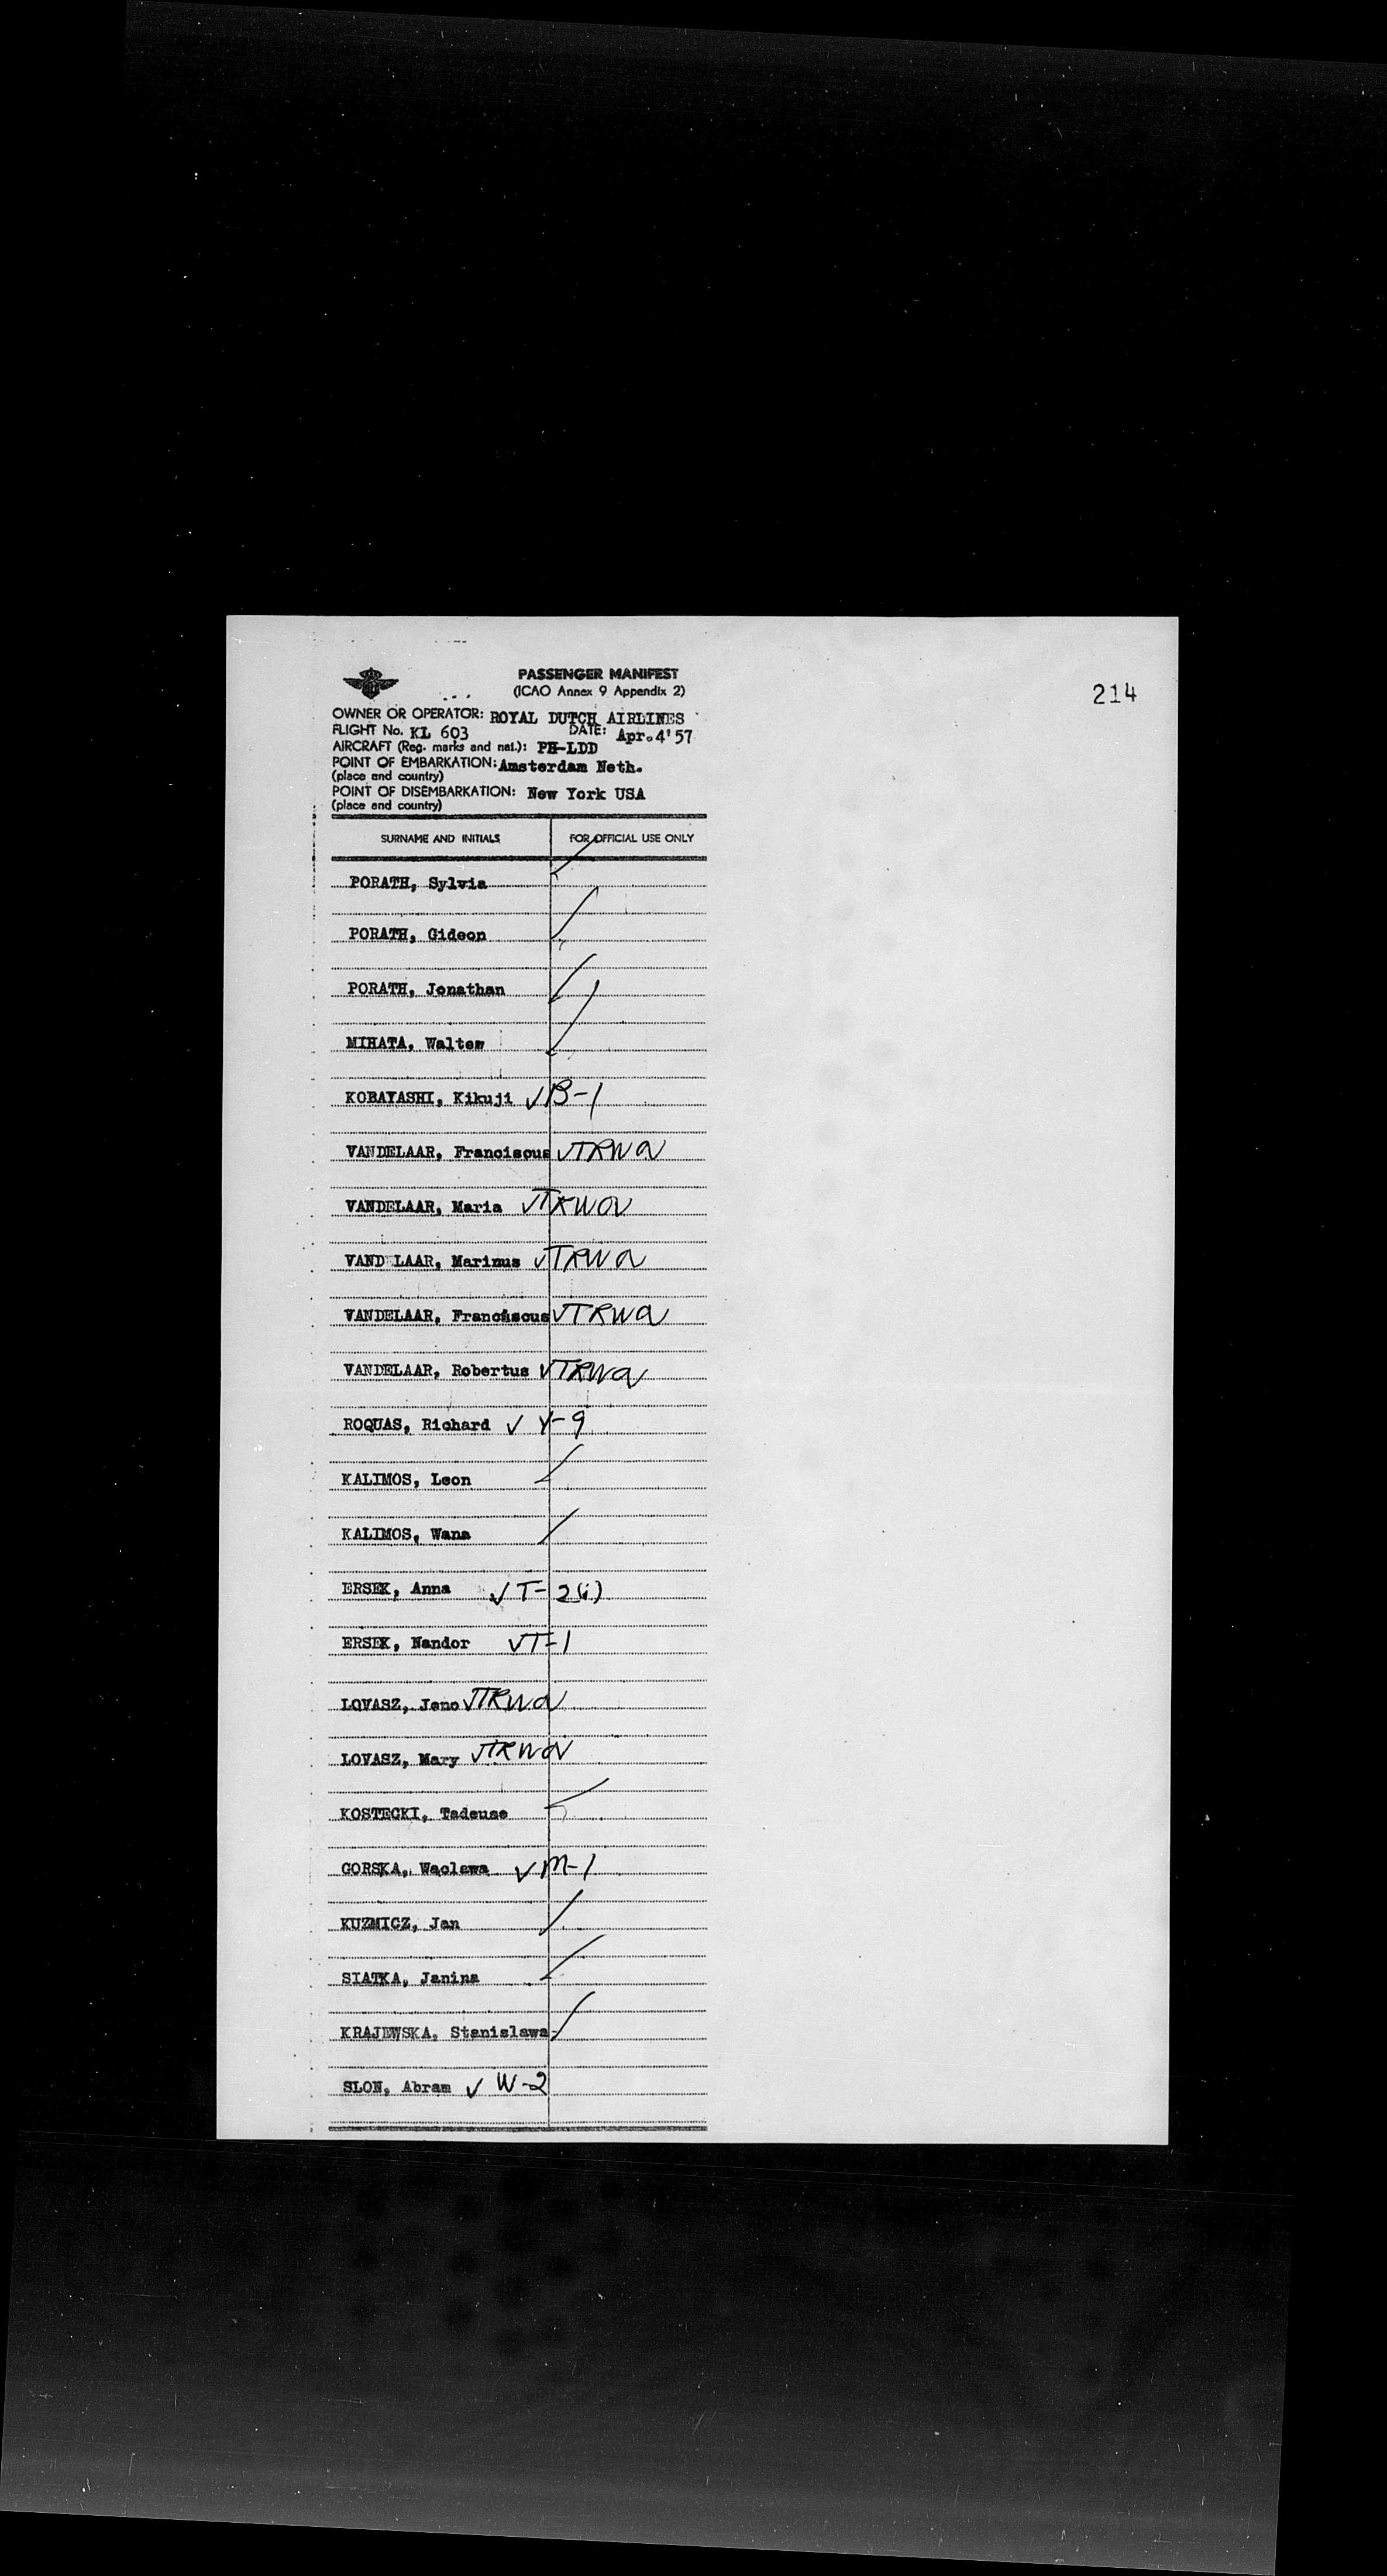 PASSENGER MANIFEST
(ICAO Annex 9 Appendix 2)
214
OWNER OR OPERATOR: ROYAL DUTCH AIRLINES
FLIGHT No. KL 603 DATE: Apr. 4'57
AIRCRAFT (Reg. marks and nat.): PH-LDD
POINT OF EMBARKATION: Amsterdam Neth.
(place and country)
POINT OF DISEMBARKATION: New York USA
(place and country)
SURNAME AND INITIALS FOR OFFICIAL USE ONLY
PORATH, Sylvia
PORATH, Gideon
PORATH, Jonathan
MIHATA, Walter
KOBAYASHI, Kikuji ✓ B-1
VANDELAAR, Franciscus ✓ TRWOV
VANDELAAR, Maria ✓ TRWOV
VAND LAAR, Marinus ✓ TRWOV
VANDELAAR, Franciscus ✓ TRWOV
VANDELAAR, Robertus ✓ TRWOV
ROQUAS, Richard ✓ Y-9
KALIMOS, Leon
KALIMOS, Wana
ERSEK, Anna ✓ T-2(i)
ERSEK, Nandor ✓ T-1
LOVASZ, Jeno ✓ TRWOV
LOVASZ, Mary ✓ TRWOV
KOSTECKI, Tadeusz
GORSKA, Waclawa ✓ M-1
KUZMICZ, Jan
SIATKA, Janina
KRAJEWSKA, Stanislawa
SLON, Abram ✓ W-2